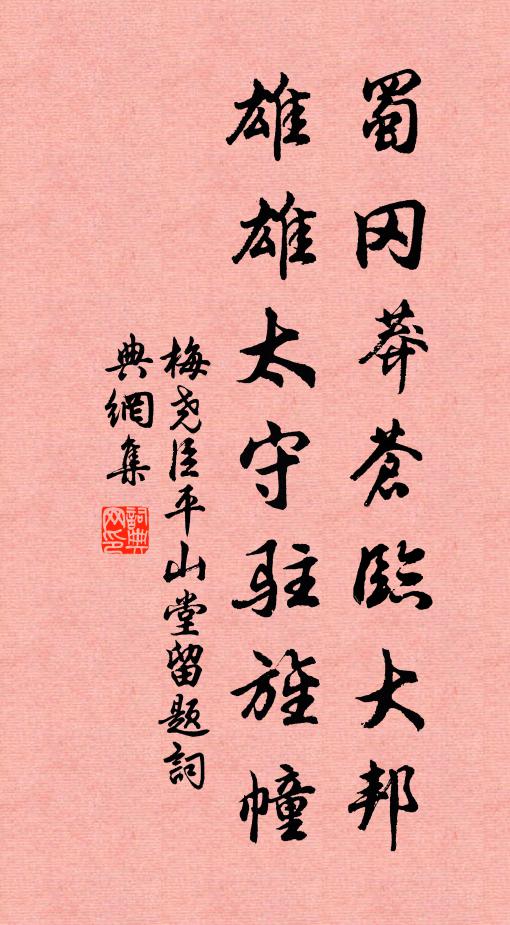 蜀冈莽苍臨大邦
雄雄太守駐旌幢
梅尧臣平山堂留题詞
典網集
詞典网印